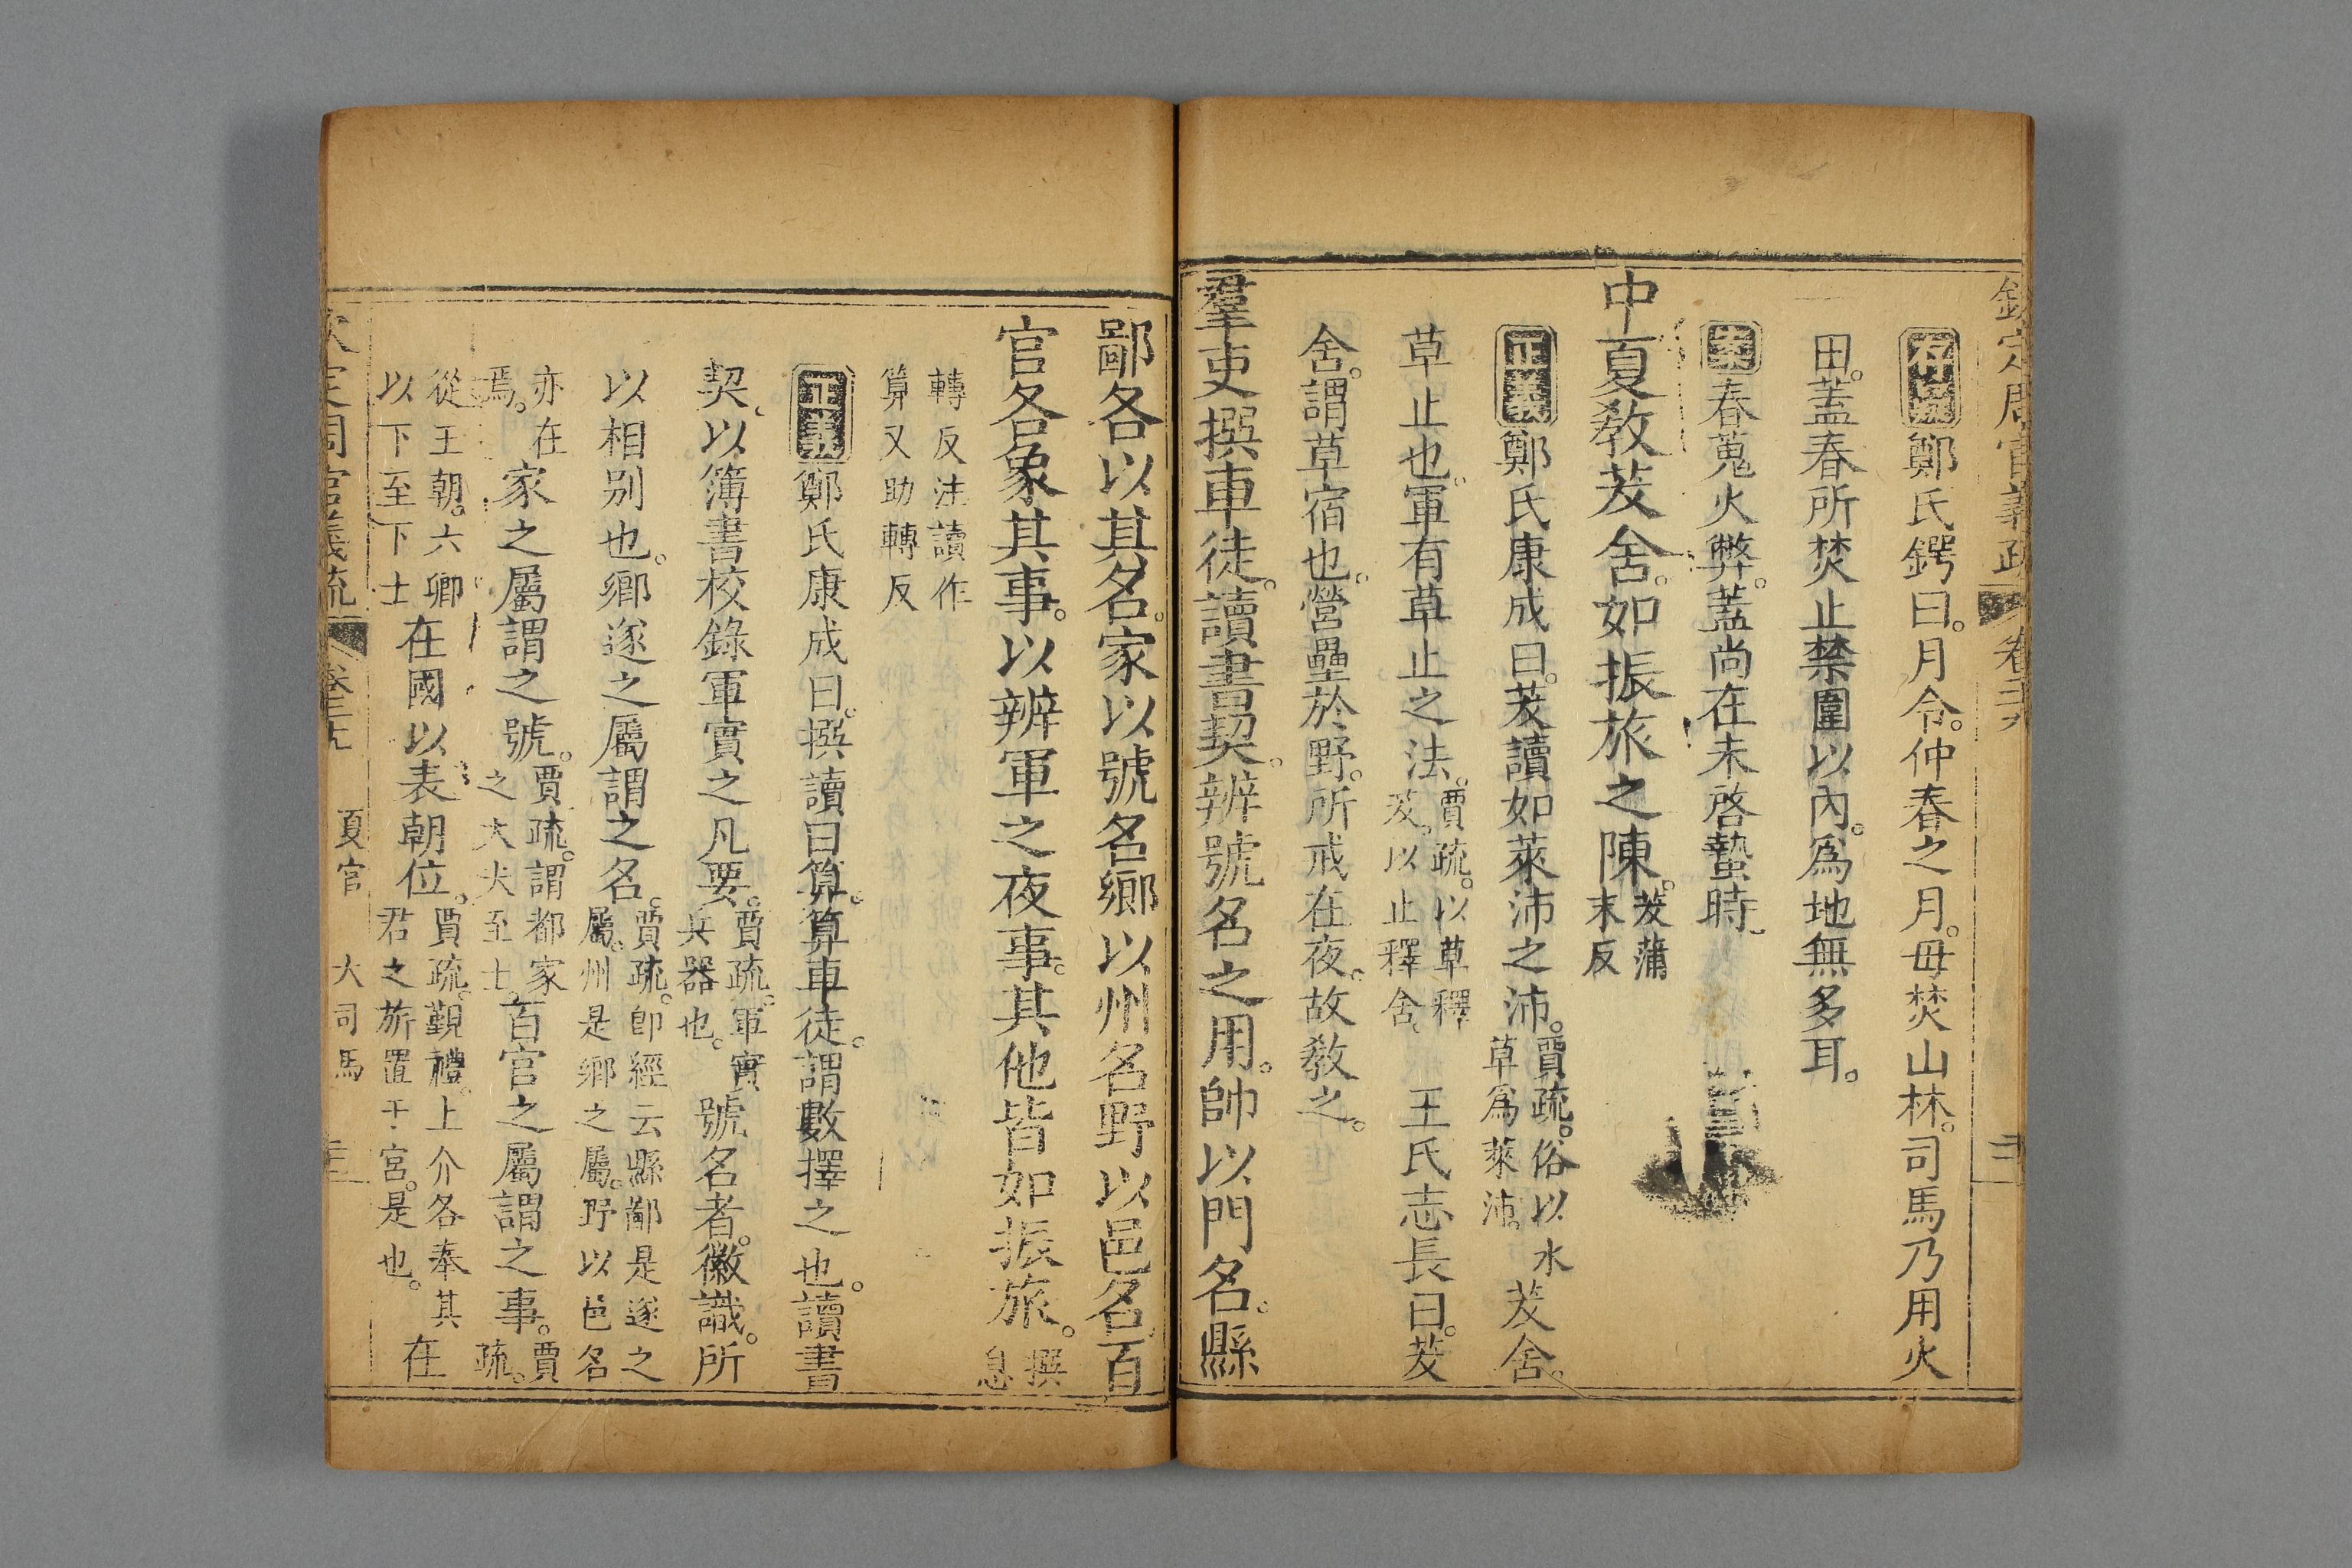 欽定周官義疏 卷二十九
存疑鄭氏鍔曰。月令。仲春之月。毋焚山林。司馬乃用火
田。蓋春所焚止禁圍以內。爲地無多耳。
案春蒐火弊。蓋尚在未啓蟄時。
中夏教茇舍。如振旅之陳。茇蒲末反
正義鄭氏康成曰。茇讀如萊沛之沛。賈疏。俗以水草爲萊沛。茇舍。
草止也。軍有草止之法。賈疏。以草釋茇。以止釋舍。 王氏志長曰。茇
舍。謂草宿也。營壘於野。所戒在夜。故教之。
羣吏撰車徒。讀書契。辨號名之用。帥以門名。縣
鄙各以其名。家以號名。鄉以州名。野以邑名。百
官各象其事。以辨軍之夜事。其他皆如振旅。撰息
轉反注讀作算又助轉反
正義鄭氏康成曰。撰讀曰算。算車徒。謂數擇之也。讀書
契。以簿書校錄軍實之凡要。賈疏。軍實兵器也。號名者。徽識。所
以相別也。鄉遂之屬謂之名。賈疏。卽經云縣鄙是遂之屬。州是鄉之屬。野以邑名
亦在焉。家之屬謂之號。賈疏。謂都家之大夫至士。百官之屬謂之事。賈疏。
從王朝。六卿以下至下士在國以表朝位。賈疏。覲禮。上介各奉其君之旂置于宮。是也。在
欽定周官義疏 卷三十九 夏官 大司馬 三